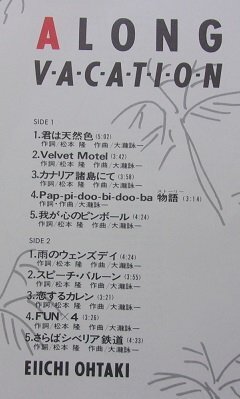 A LONG
V-A-C-A-T-I-O-N
SIDE 1
1.君は天然色(5:02)
作詞/松本 隆 作曲/大瀧詠一
2.Velvet Motel(3:42)
作詞/松本 隆 作曲/大瀧詠一
3.カナリア諸島にて(3:58)
作詞/松本 隆 作曲/大瀧詠一
4.Pap-pi-doo-bi-doo-ba 物語(3:14)
ストーリー
作詞・作曲/大瀧詠一
5.我が心のピンボール(4:24)
作詞/松本 隆 作曲/大瀧詠一
SIDE 2
1.雨のウェンズデイ(4:24)
作詞/松本 隆 作曲/大瀧詠一
2.スピーチ・バルーン(3:55)
作詞/松本 隆 作曲/大瀧詠一
3.恋するカレン(3:21)
作詞/松本 隆 作曲/大瀧詠一
4.FUN×4(3:26)
作詞/松本 隆 作曲/大瀧詠一
5.さらばシベリア鉄道(4:33)
作詞/松本 隆 作曲/大瀧詠一
EIICHI OHTAKI